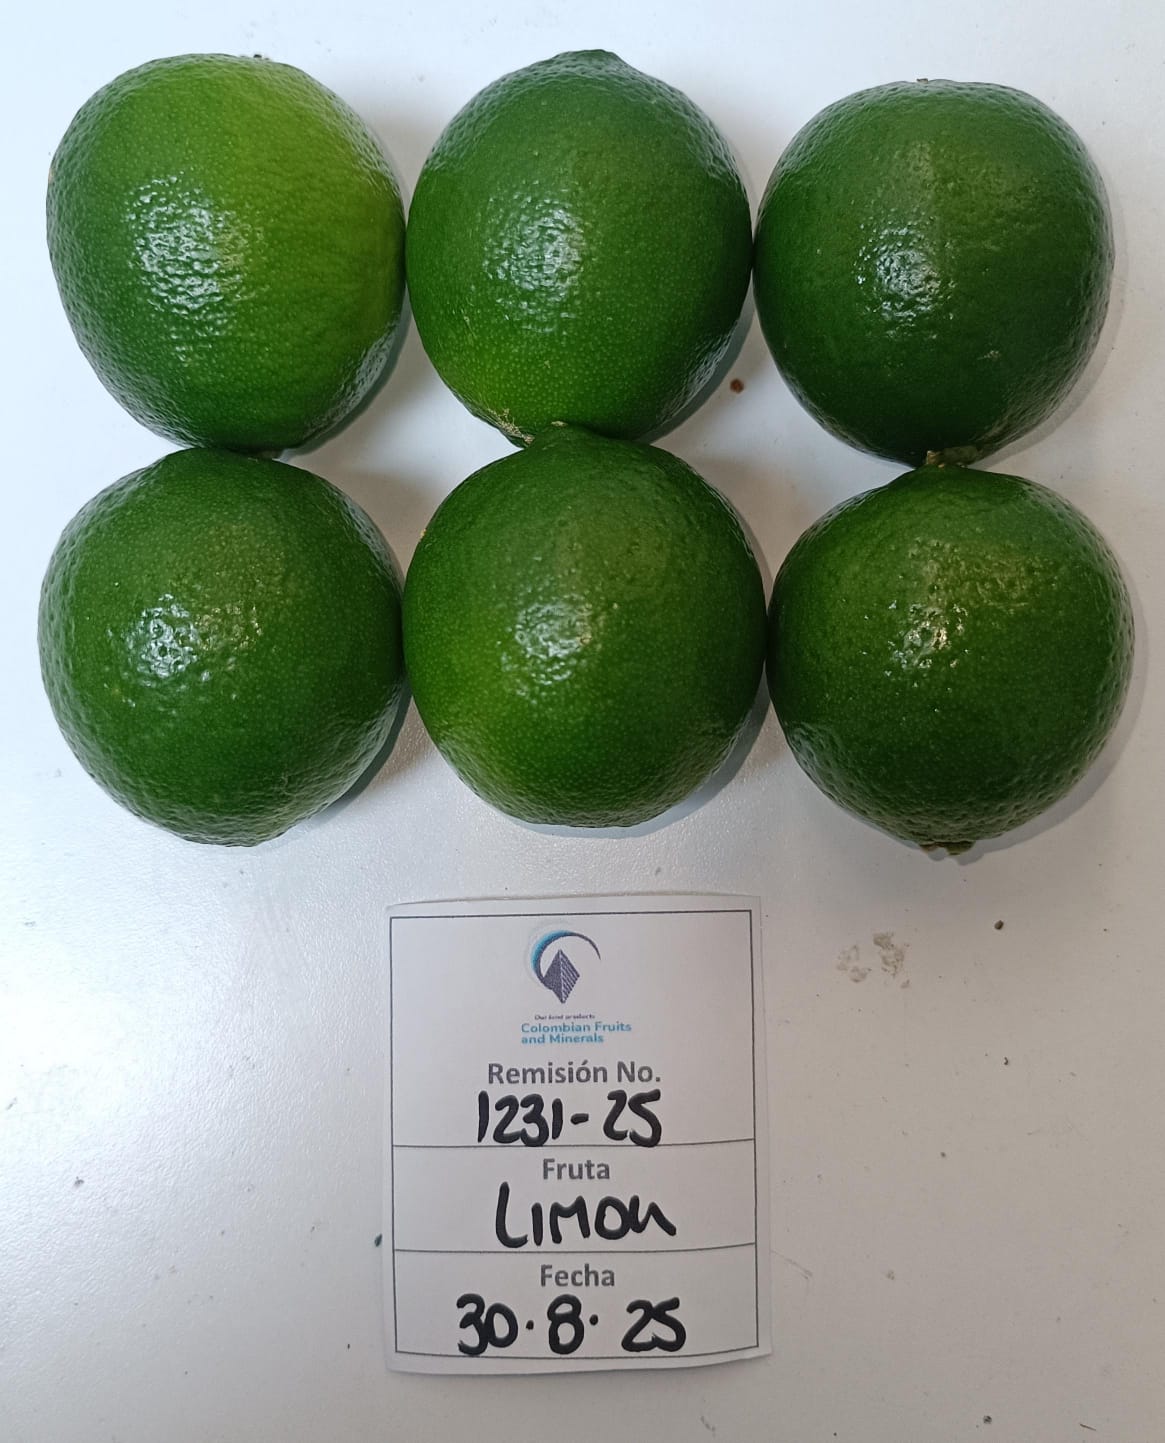 Our land products
Colombian Fruits
and Minerals
Remisión No.
1231-25
Fruta
LIMON
Fecha
30.8.25